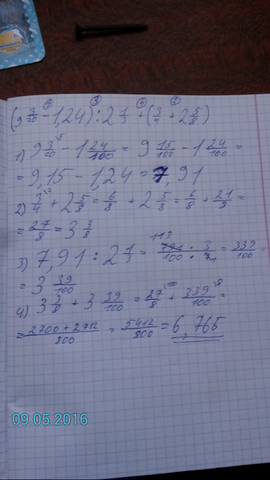 (9 3/20 - 1,24) : 2 1/3 + (3/4 + 2 5/8)
1) 9 3/20 - 1 24/100 = 9 15/100 - 1 24/100 =
= 9,15 - 1,24 = 7,91
2) 3/4 + 2 5/8 = 6/8 + 2 5/8 = 6/8 + 21/8 =
= 27/8 = 3 3/8
3) 7,91 : 2 1/3 = 791/100 · 3/7 = 339/100 =
113
= 3 39/100
4) 3 3/8 + 3 39/100 = 27/8 + 339/100 =
= 2700 + 2712/800 = 5412/800 = 6,765
09.05.2016